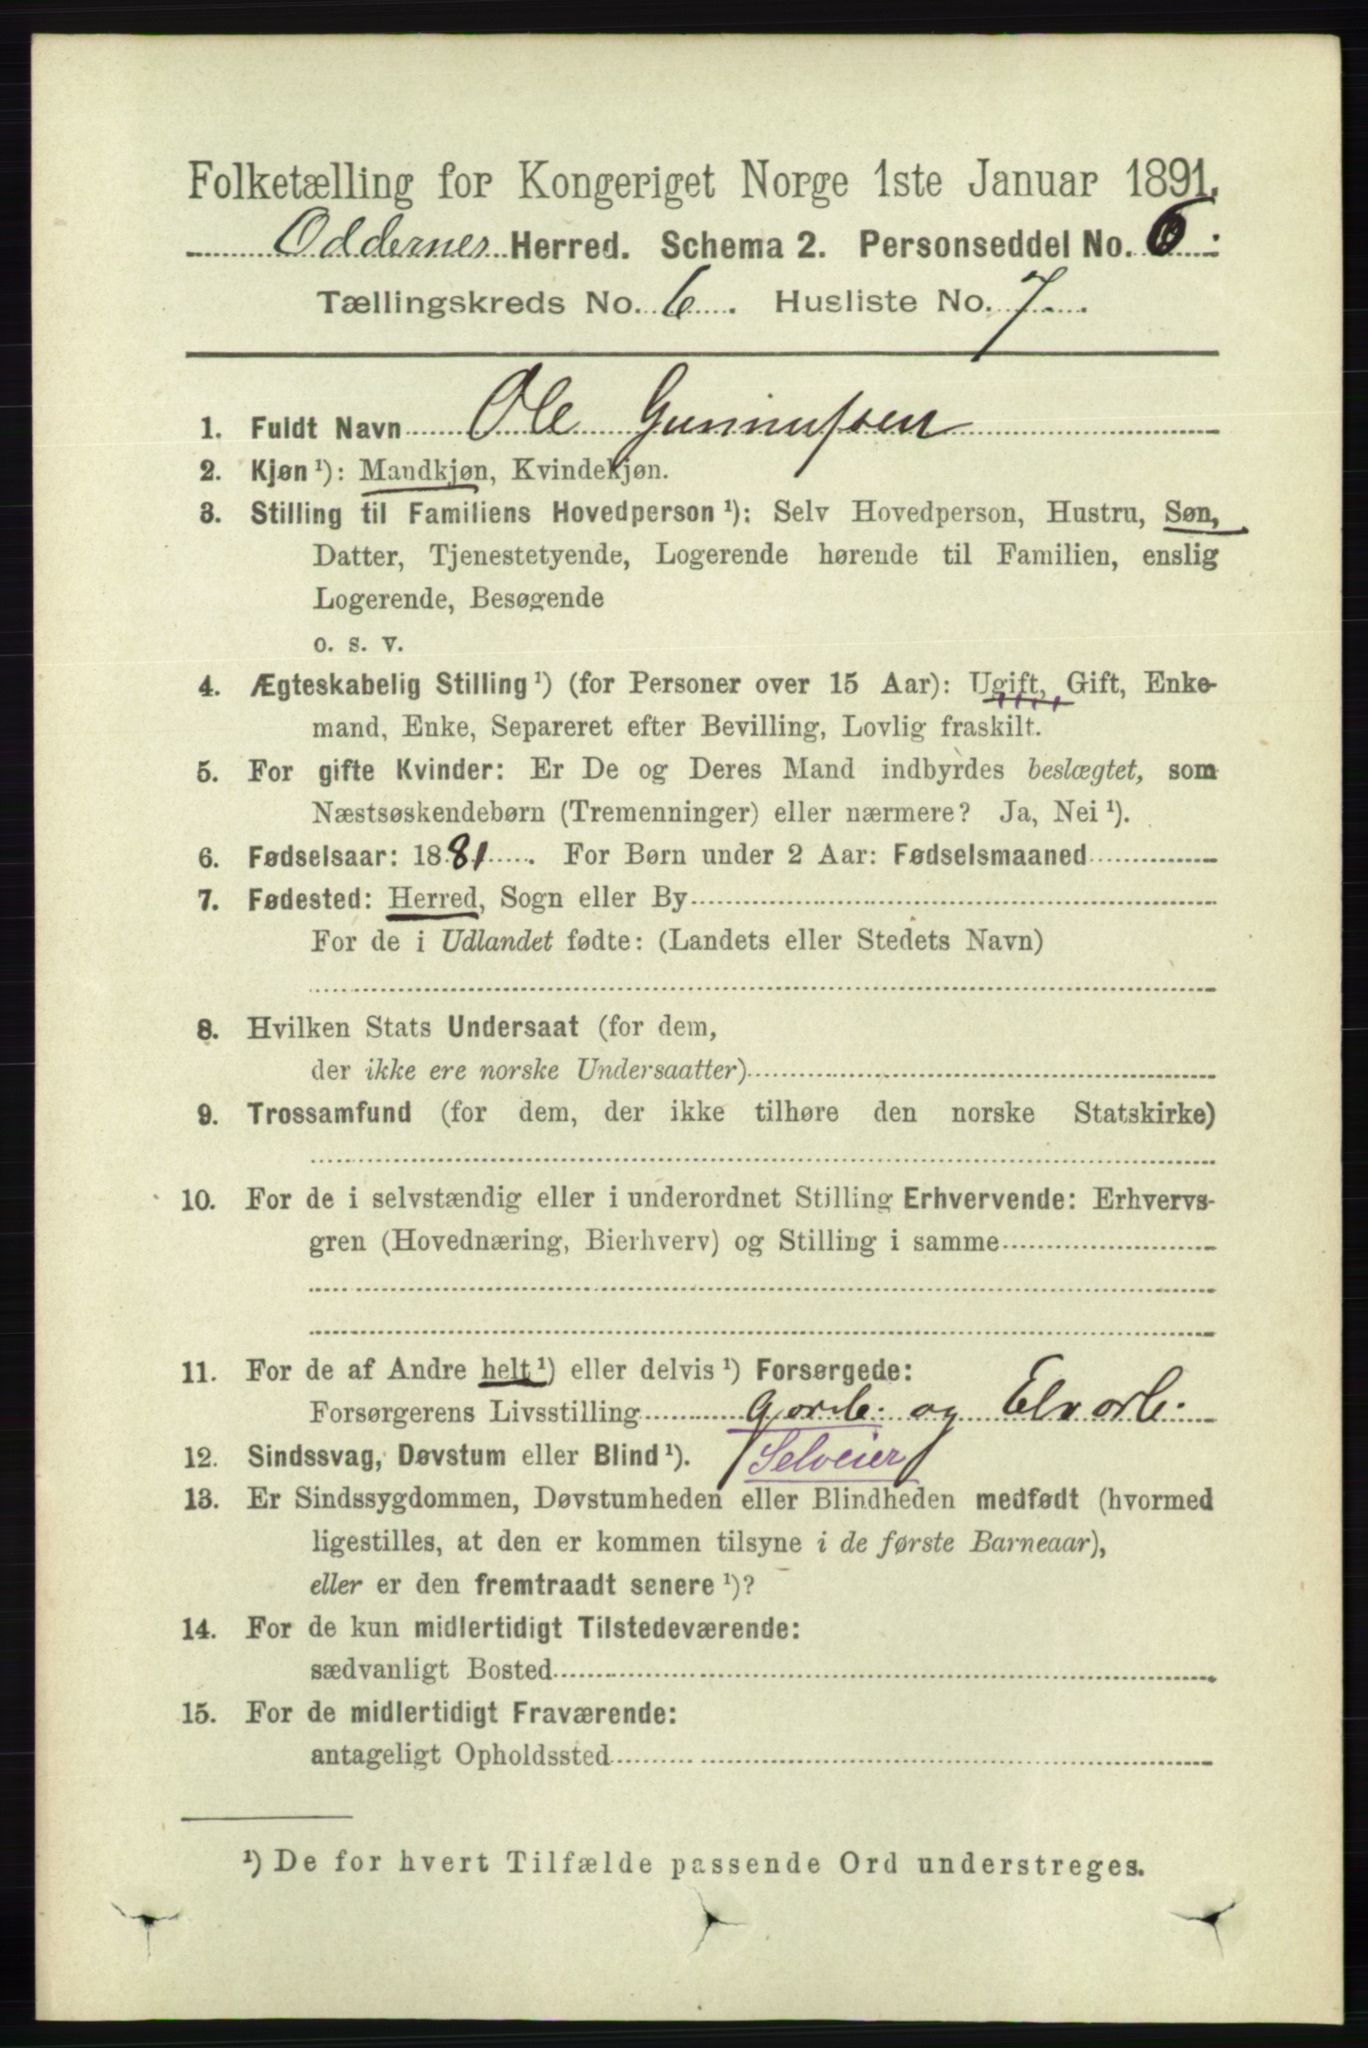 Folketælling for Kongeriget Norge 1ste Januar 1891.
Oddernes Herred. Schema 2. Personseddel No. 6.
Tællingskreds No. 6. Husliste No. 7.
1. Fuldt Navn Ole Gunnufsen
2. Kjøn ¹): Mandkjøn, Kvindekjøn.
3. Stilling til Familiens Hovedperson ¹): Selv Hovedperson, Hustru, Søn,
Datter, Tjenestetyende, Logerende hørende til Familien, enslig
Logerende, Besøgende
o. s. v.
4. Ægteskabelig Stilling ¹) (for Personer over 15 Aar): Ugift, Gift, Enke-
mand, Enke, Separeret efter Bevilling, Lovlig fraskilt.
5. For gifte Kvinder: Er De og Deres Mand indbyrdes beslægtet, som
Næstsøskendebørn (Tremenninger) eller nærmere? Ja, Nei ¹).
6. Fødselsaar: 1881. For Børn under 2 Aar: Fødselsmaaned
7. Fødested: Herred, Sogn eller By
For de i Udlandet fødte: (Landets eller Stedets Navn)
8. Hvilken Stats Undersaat (for dem,
der ikke ere norske Undersaatter)
9. Trossamfund (for dem, der ikke tilhøre den norske Statskirke)
10. For de i selvstændig eller i underordnet Stilling Erhvervende: Erhvervs-
gren (Hovednæring, Bierhverv) og Stilling i samme
11. For de af Andre helt ¹) eller delvis ¹) Forsørgede:
Forsørgerens Livsstilling Gorb. og Elvarb.
12. Sindssvag, Døvstum eller Blind ¹). Selveier
13. Er Sindssygdommen, Døvstumheden eller Blindheden medfødt (hvormed
ligestilles, at den er kommen tilsyne i de første Barneaar),
eller er den fremtraadt senere ¹)?
14. For de kun midlertidigt Tilstedeværende:
sædvanligt Bosted
15. For de midlertidigt Fraværende:
antageligt Opholdssted
¹) De for hvert Tilfælde passende Ord understreges.